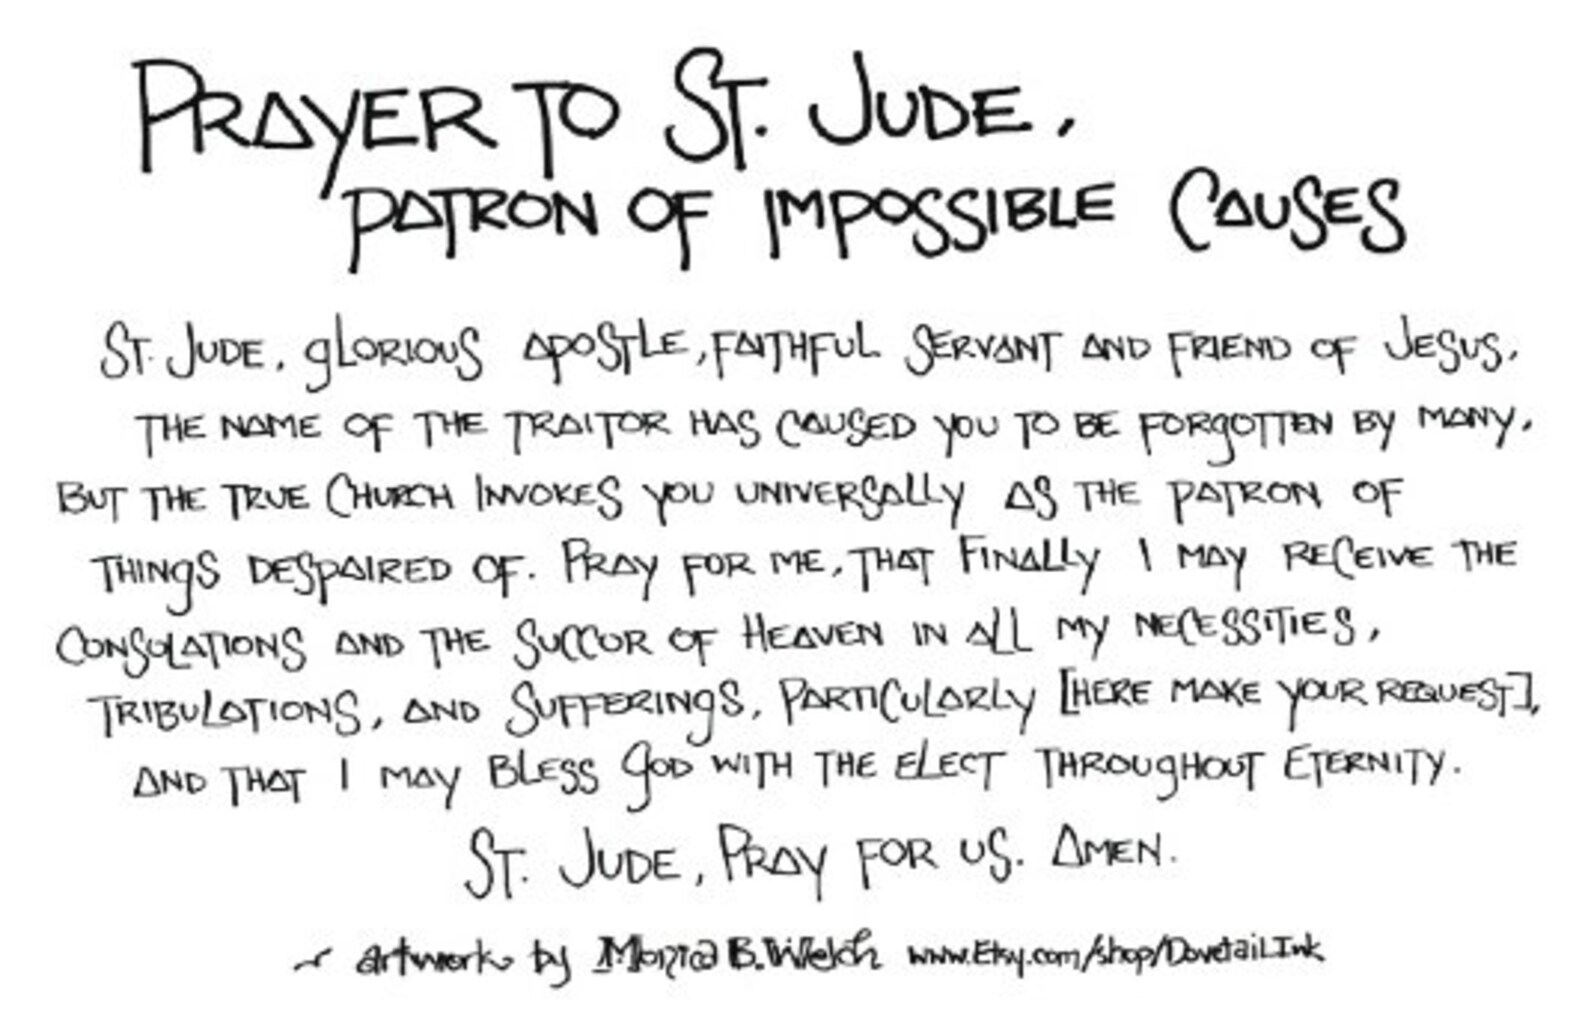 Prayer to St. Jude,
Patron of Impossible Causes
St. Jude, glorious apostle, faithful servant and friend of Jesus,
the name of the traitor has caused you to be forgotten by many,
but the true Church invokes you universally as the patron of
things despaired of. Pray for me, that finally I may receive the
consolations and the succor of Heaven in all my necessities,
tribulations, and sufferings, particularly [here make your request],
and that I may bless God with the elect throughout Eternity.
St. Jude, Pray for us. Amen.
~ artwork by Monica B. Welch www.Etsy.com/shop/DovetailInk